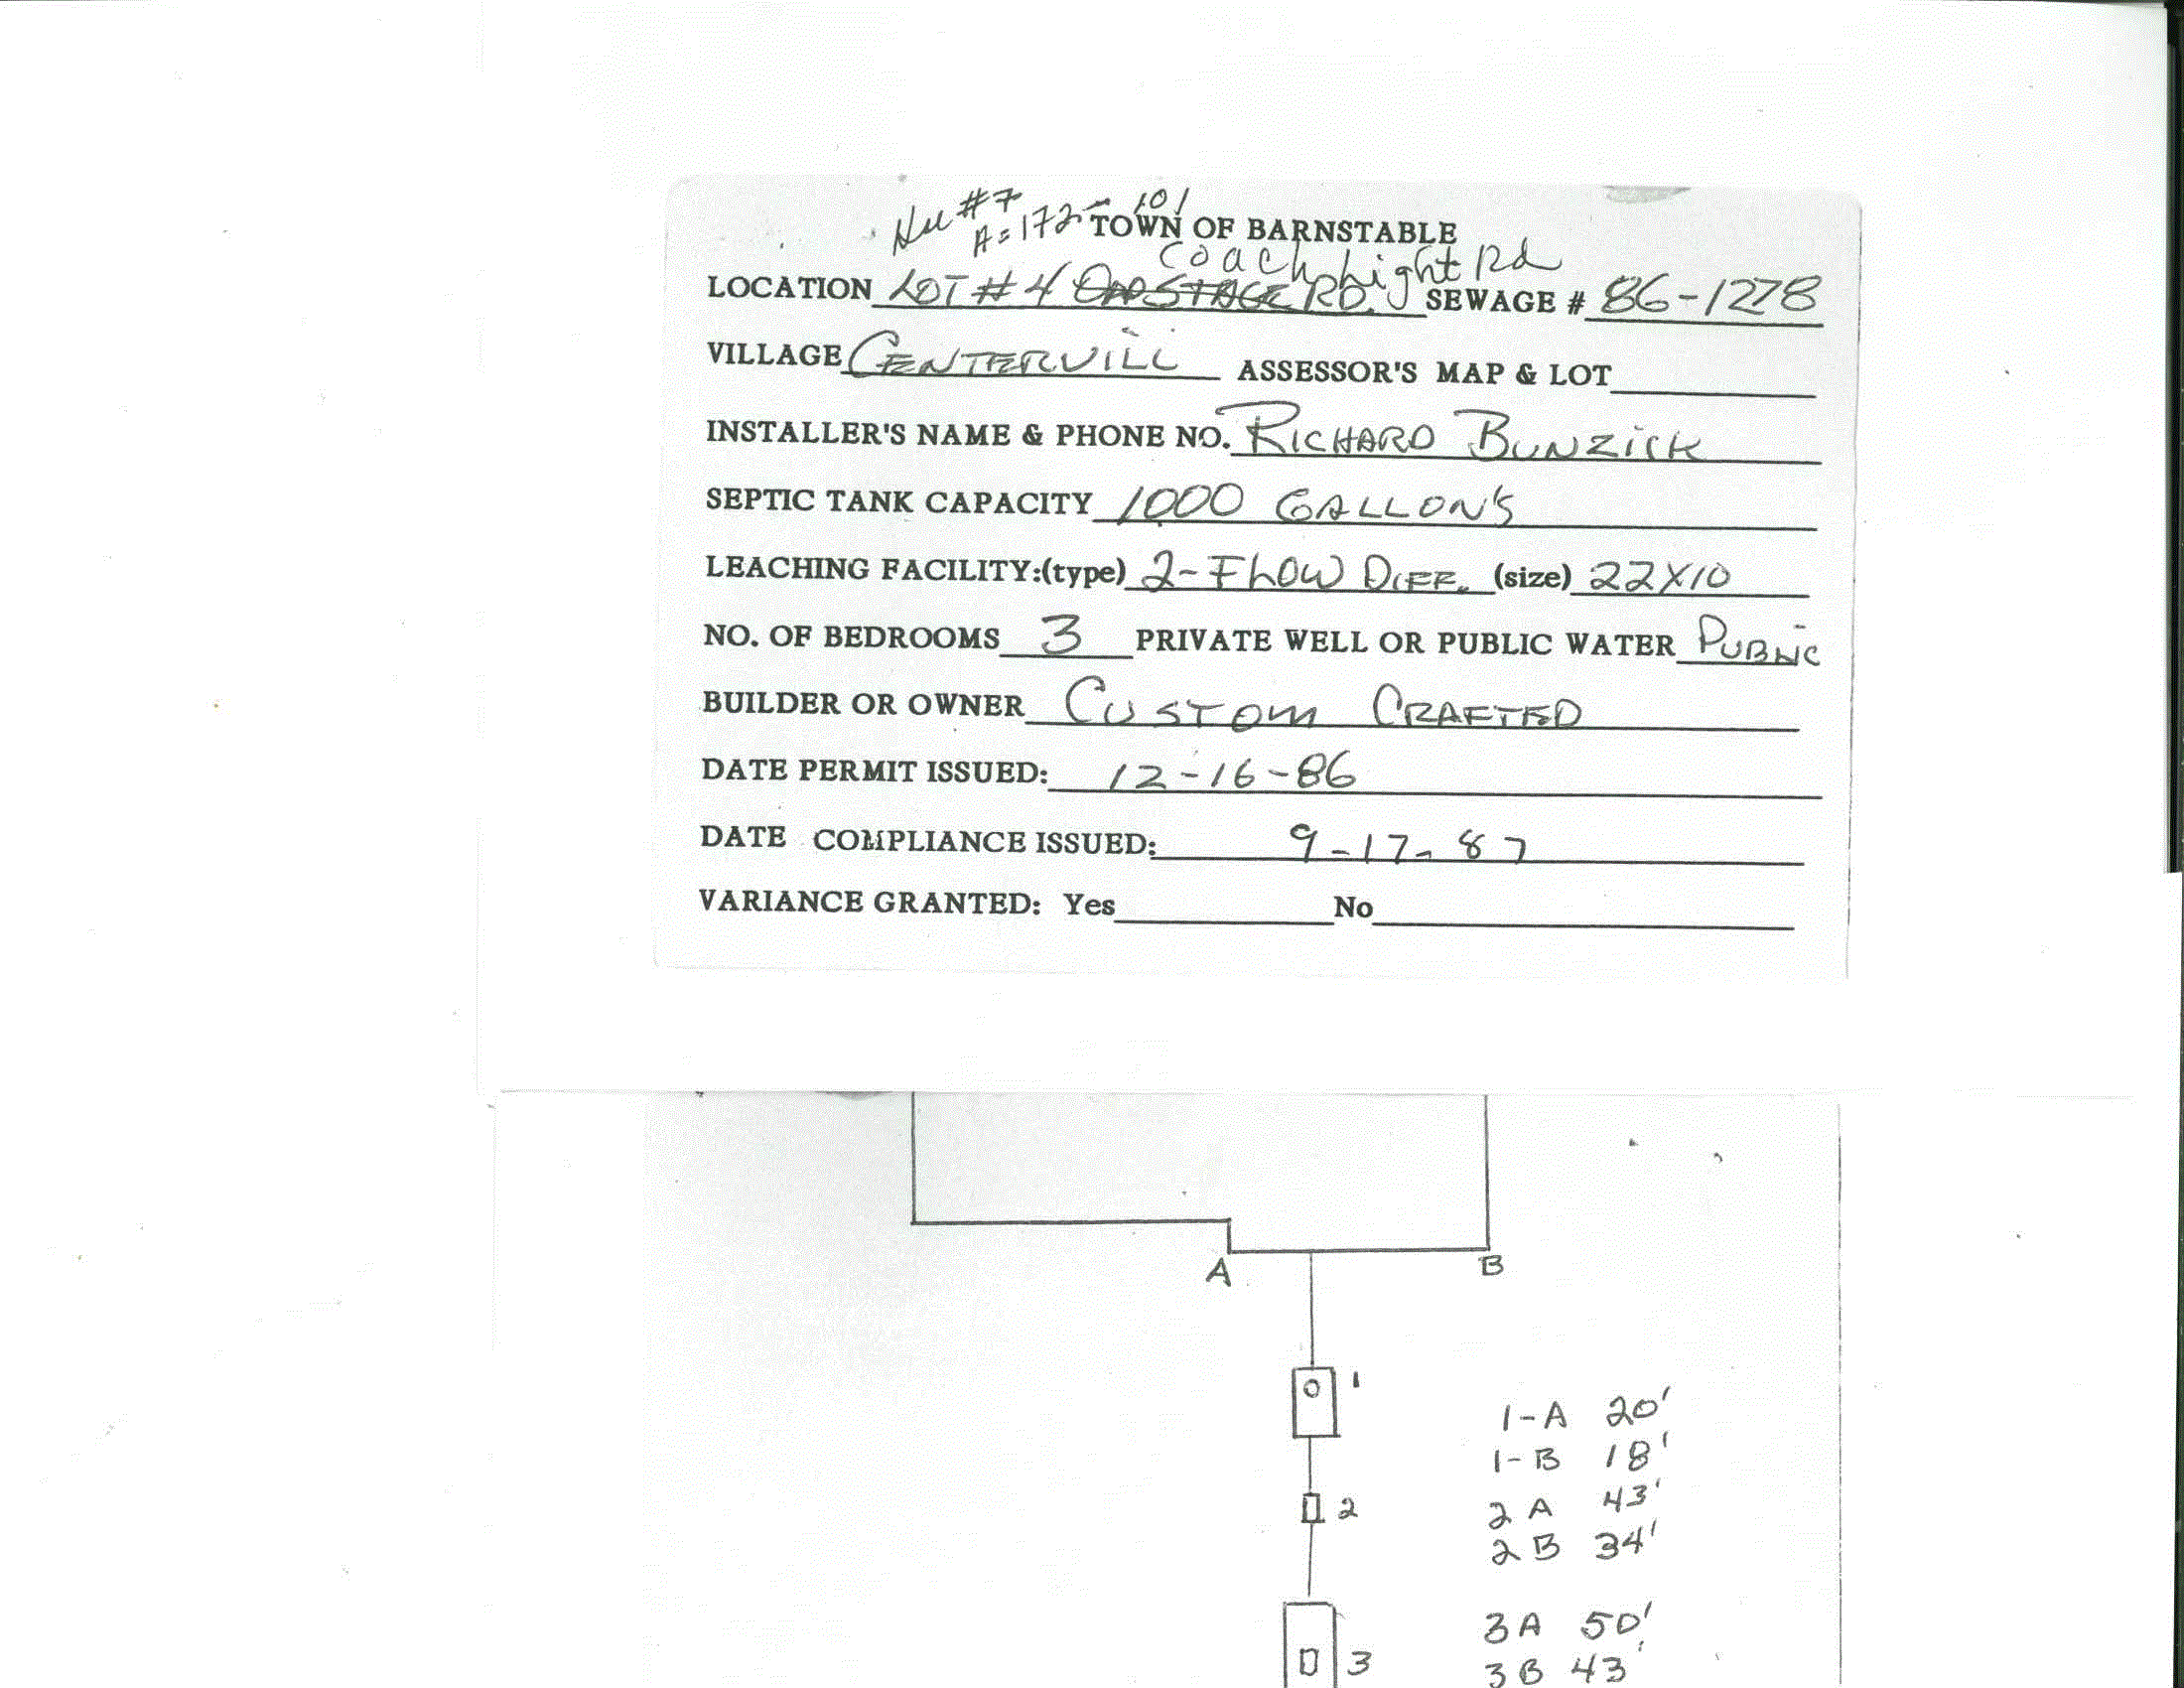 #7
A=172-101
TOWN OF BARNSTABLE
Coach Light Rd
LOCATION LOT #4 OLD STAGE RD. SEWAGE # 86-1278
VILLAGE CENTERVILL ASSESSOR'S MAP & LOT
INSTALLER'S NAME & PHONE NO. RICHARD BUNZICK
SEPTIC TANK CAPACITY 1000 GALLON'S
LEACHING FACILITY:(type) 2-FLOW DIFF. (size) 22X10
NO. OF BEDROOMS 3 PRIVATE WELL OR PUBLIC WATER PUBLIC
BUILDER OR OWNER CUSTOM CRAFTED
DATE PERMIT ISSUED: 12-16-86
DATE COMPLIANCE ISSUED: 9-17-87
VARIANCE GRANTED: Yes No
A B
1
1-A 20'
1-B 18'
2
2 A 43'
2 B 34'
3A 50'
3
3B 43'